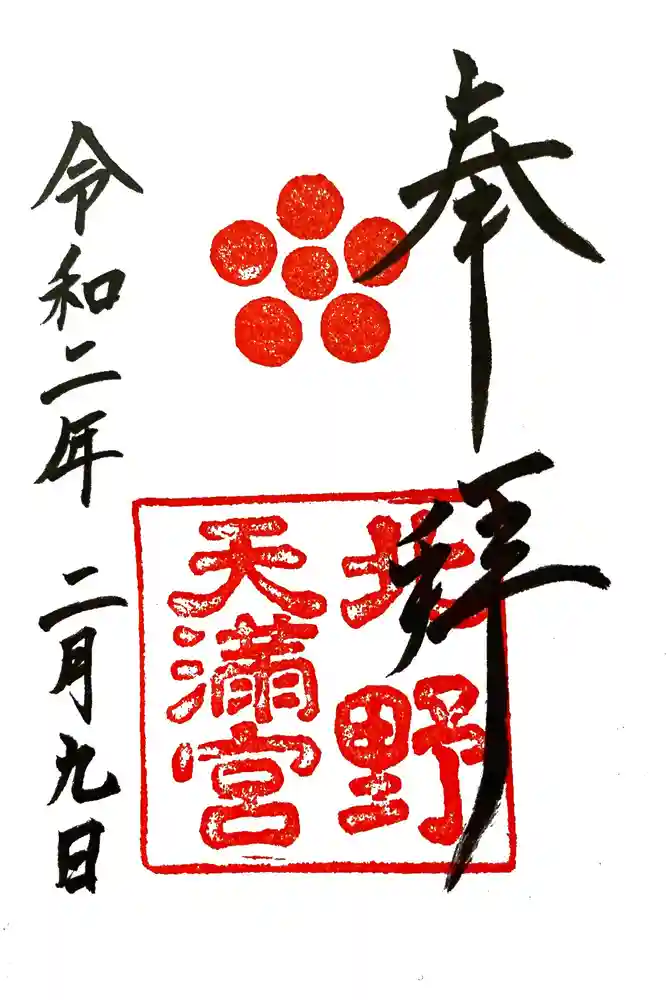 奉拝
北野
天満宮
令和二年 二月九日